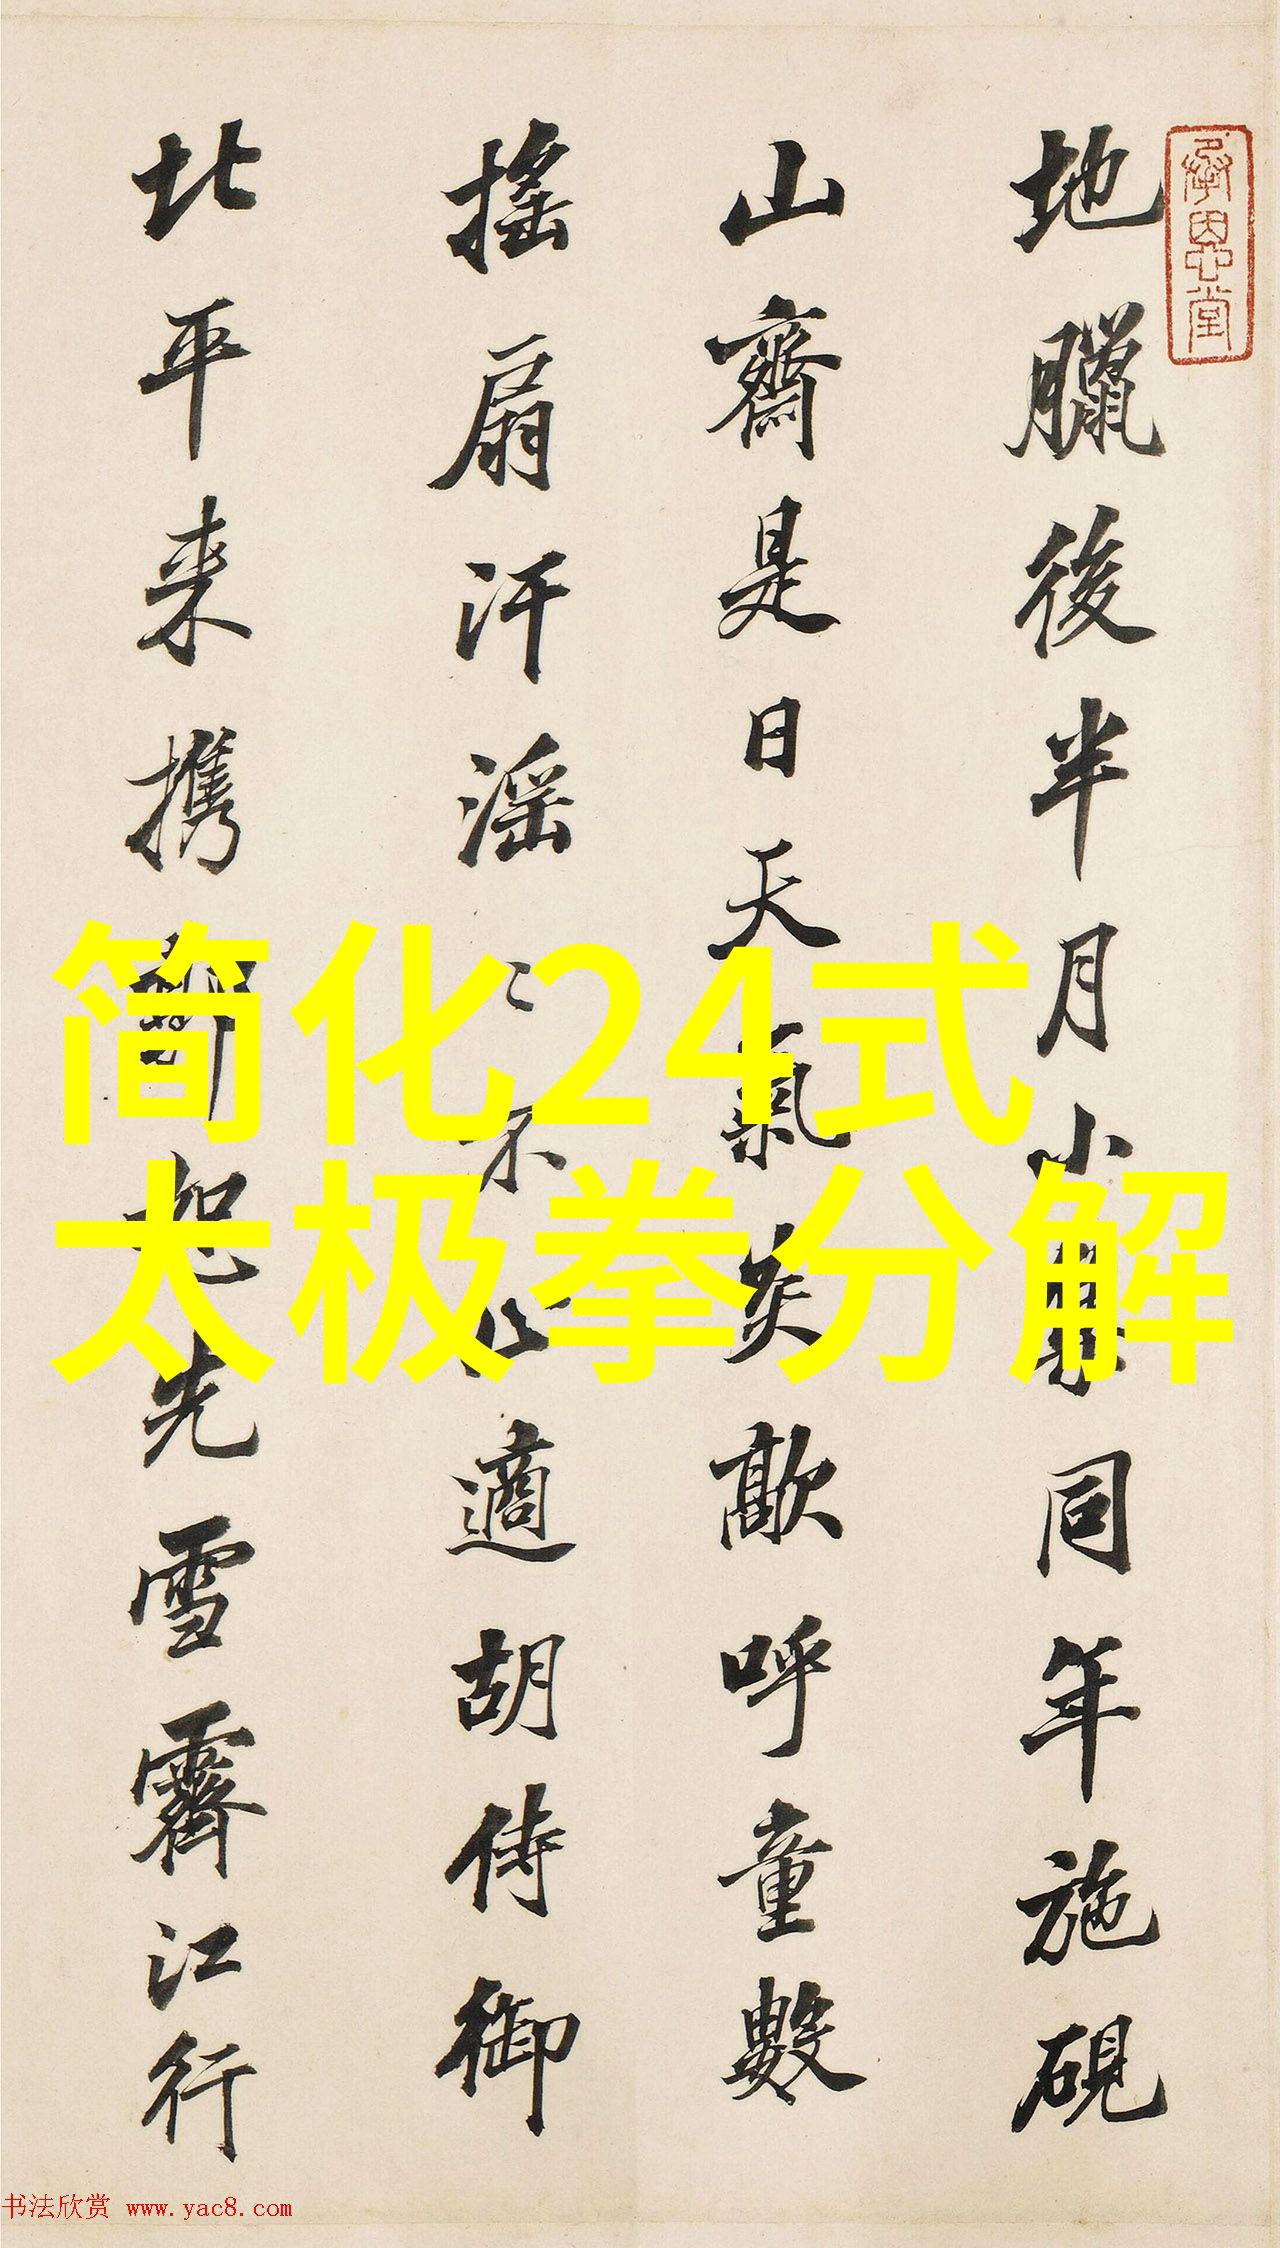 承恩堂
地臘後半月小集同年施硯
山齋是日天氣炎歊呼童數
搖扇汗滛〻不止適胡侍御
北平来攜鄭恕先雪霽江行
简化24式
太极拳分解
书法欣赏 www.yac8.com